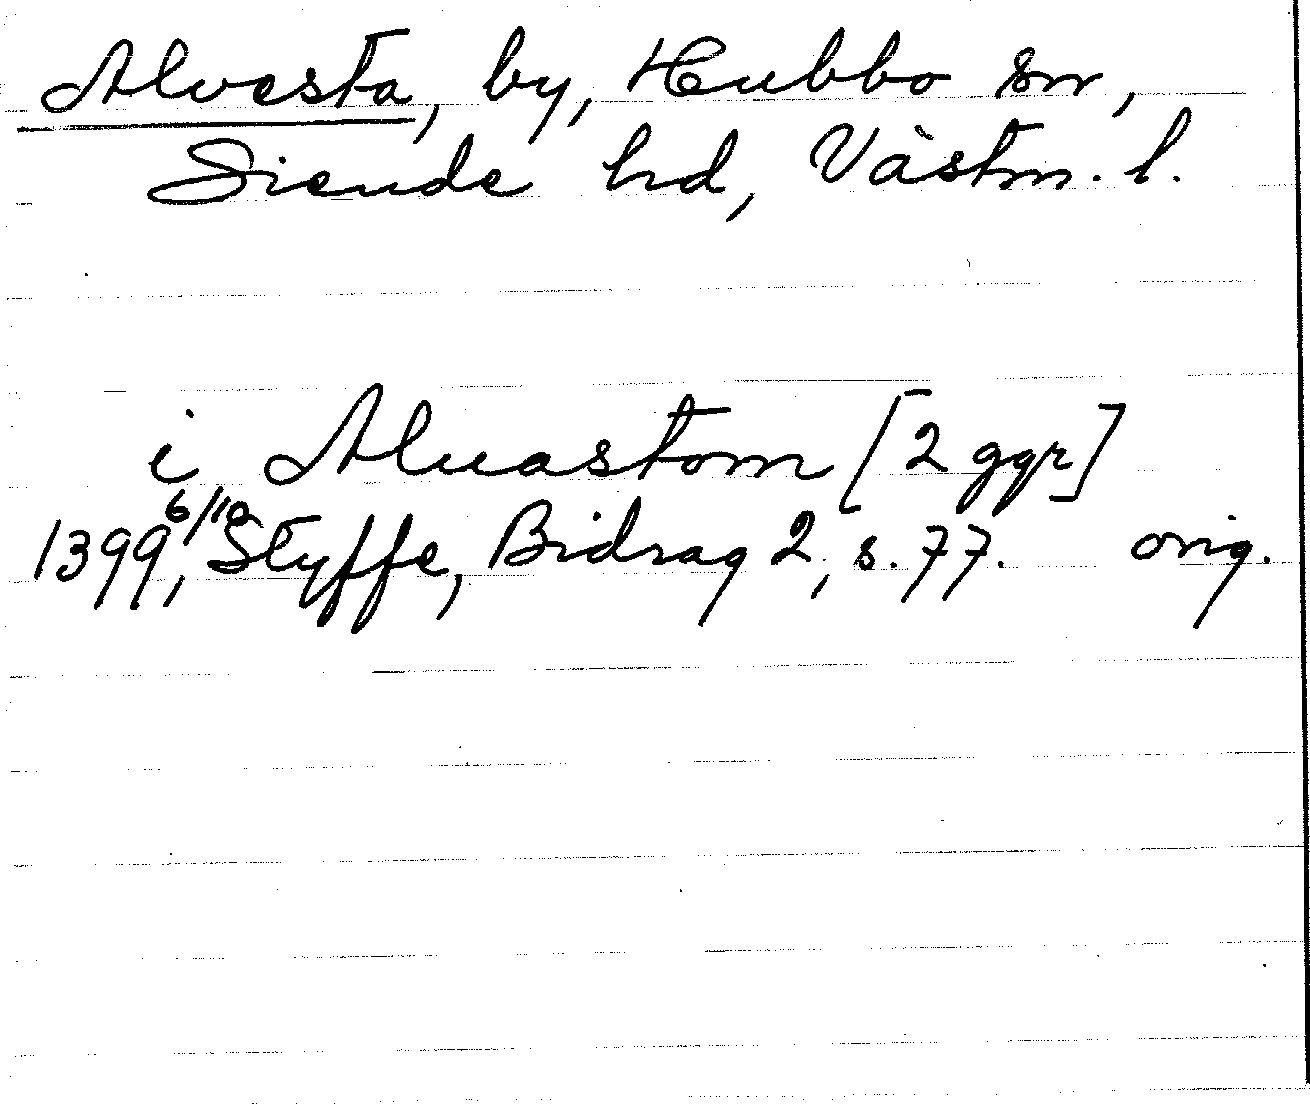 Alvesta, by, Hubbo sn,
Siende hd, Västm. l.
i Aluastom [2 ggr]
1399 6/10, Styffe, Bidrag 2, s. 77. orig.